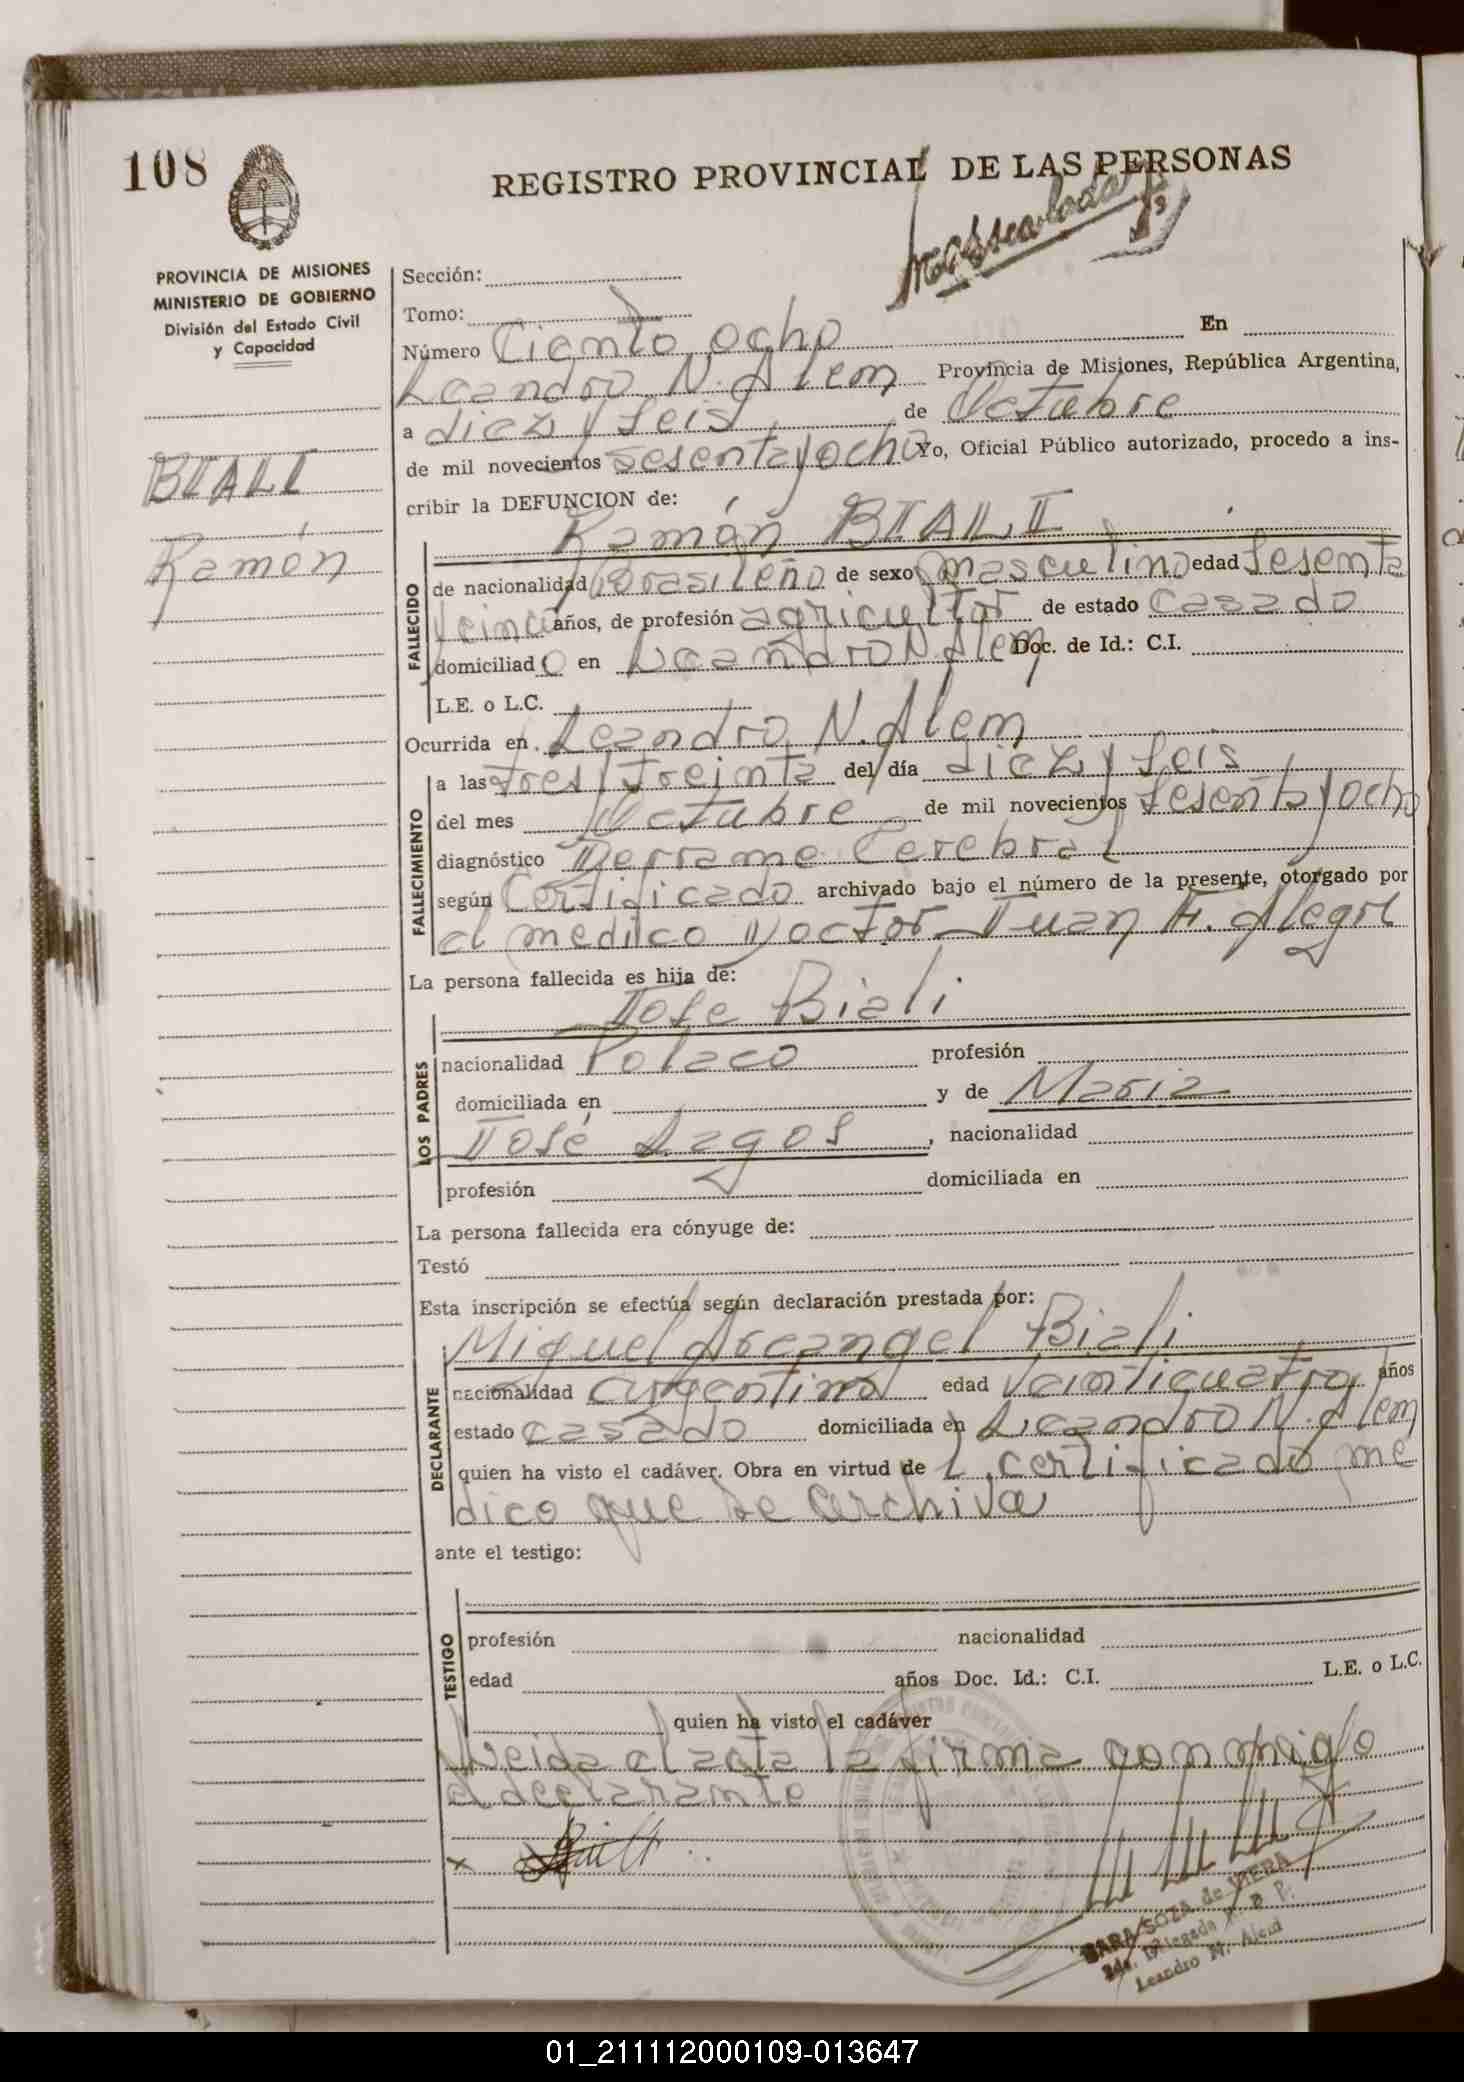 108
REGISTRO PROVINCIAL DE LAS PERSONAS
PROVINCIA DE MISIONES
MINISTERIO DE GOBIERNO
División del Estado Civil
y Capacidad
BIALI
Ramón
Sección:
Tomo:
Número Ciento ocho En
Leandro N. Alem Provincia de Misiones, República Argentina,
a diez y seis de Octubre
de mil novecientos sesenta y ocho Yo, Oficial Público autorizado, procedo a ins-
cribir la DEFUNCION de:
Ramón BIALI
FALLECIDO
de nacionalidad Brasileño de sexo masculino edad sesenta
y cinco años, de profesión agricultor de estado casado
domiciliado en Leandro N Alem Doc. de Id.: C.I.
L.E. o L.C.
Ocurrida en Leandro N. Alem
FALLECIMIENTO
a las tres y treinta del día diez y seis
del mes Octubre de mil novecientos sesenta y ocho
diagnóstico Derrame Cerebral
según Certificado archivado bajo el número de la presente, otorgado por
el medico Doctor Juan F. Alegre
La persona fallecida es hija de:
LOS PADRES
Jose Biali
nacionalidad Polaco profesión
domiciliada en y de Maria
José Lagos, nacionalidad
profesión domiciliada en
La persona fallecida era cónyuge de:
Testó
Esta inscripción se efectúa según declaración prestada por:
DECLARANTE
Miguel Arcangel Biali
nacionalidad argentino edad veinticuatro años
estado casado domiciliada en Leandro N. Alem
quien ha visto el cadáver. Obra en virtud de l certificado me
dico que se archiva
ante el testigo:
TESTIGO
profesión nacionalidad
edad años Doc. Id.: C.I. L.E. o L.C.
quien ha visto el cadáver
Leida el acta la firma con migo
el declarante
x
SARA SOZA de VIERA
Leandro N. Alem
01_211112000109-013647